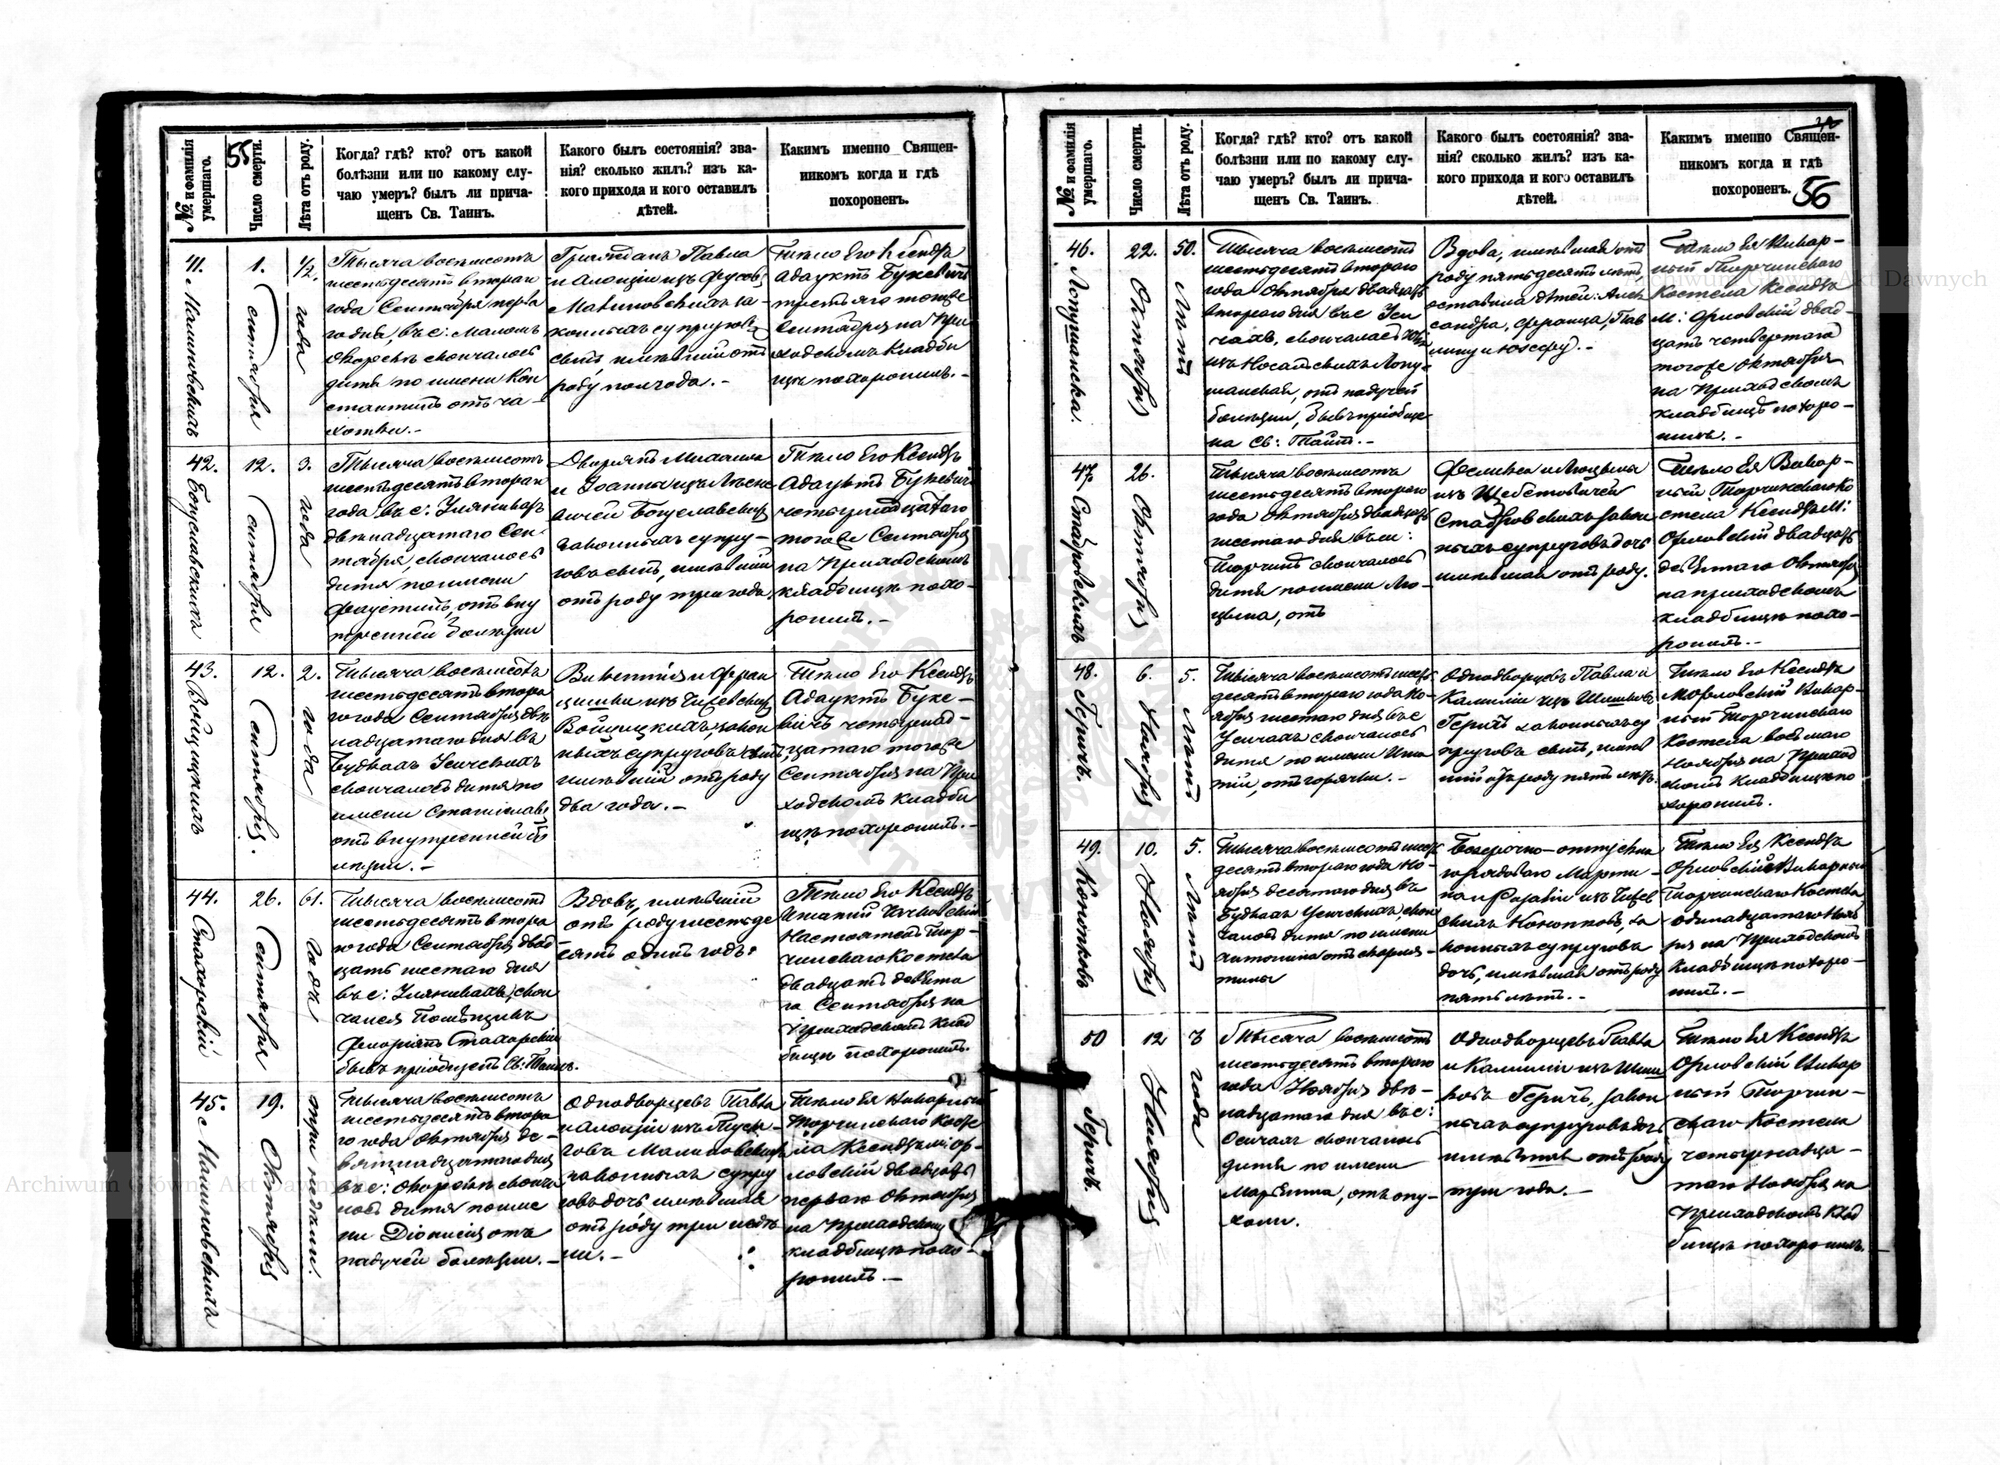 № и фамилія умершаго.
55
Число смерти.
Лѣта отъ роду.
Когда? гдѣ? кто? отъ какой
болѣзни или по какому слу-
чаю умеръ? былъ ли прича-
щенъ Св. Таинъ.
Какого былъ состоянія? зва-
нія? сколько жилъ? изъ ка-
кого прихода и кого оставилъ
дѣтей.
Каким именно Священ-
никомъ когда и гдѣ
похороненъ.
41.
1.
Сентября
1/2
года
Тысяча восемсотъ
шестьдесятъ втораго
года Сентября перва
го дня, въ с: Маломъ
скончалось
дитя по имени Кон
стантинъ отъ ча-
хотки.-
Павла
законныхъ супруговъ
сынъ имѣвшій отъ
роду полгода.-
Тѣло Его Ксендзъ
Адауктъ Букевичъ
третьяго тогоже
Сентября на При
ходскомъ Кладби
щѣ похоронилъ.-
42. Богуславскихъ
12.
Сентября
3.
года
Тысяча восемсотъ
шестьдесятъ втораго
года въ с:
двѣнадцатаго Сен
тября, скончалось
дитя по имени
Фаустинъ, отъ вну
тренней болезни
Дворянъ Михаила
и Іоанны изъ
Богуславскихъ
законныхъ супру-
говъ сынъ, имѣвшій
отъ роду три года.
Тѣло Его Ксендзъ
Адауктъ Букевичъ
четырнадцатаго
тогоже Сентября
на Приходскомъ
кладбищѣ похо-
ронилъ.-
43. Войцицкихъ
12.
Сентября.
2.
года
Тысяча восемсотъ
шестьдесятъ втора
го года Сентября двѣ
надцатаго дня въ
Будкахъ Усичскихъ
скончалось дитя по
имени Станіславъ
отъ внутренней бо
лезни.-
Викентія и Фран
цишки изъ
Войцицкихъ, закон
ныхъ супруговъ сынъ,
имѣвшій отъ роду
два года.-
Тѣло Его Ксендзъ
Адауктъ Буке-
вичъ четырнад-
цатаго тогоже
Сентября на При
ходскомъ кладби
щѣ похоронилъ.-
44. Стахорскій
26.
Сентября
61.
годъ
Тысяча восемсотъ
шестьдесятъ втора
го года Сентября двад
цать шестаго дня
въ с: скон
чался Помѣщикъ
Флоріянъ Стахорскій
бывъ пріобщенъ Св: Таинъ.
Вдовъ, имѣвшій
отъ роду шестьде
сятъ одинъ годъ.
Тѣло Его Ксендзъ
Настоятель Тор-
чинскаго Костела
двадцать девята
го Сентября на
Приходскомъ клад
бищѣ похоронилъ.
45. Малиновскихъ
19.
Октября
три недѣли.
Тысяча восемсотъ
шестьдесятъ втора
го года Октября де-
вятнадцатаго дня
въ с: сконча
лось дитя по име
ни Діонисія отъ
падучей болезни.-
Однодворцевъ Павла
Малиновскихъ
законныхъ супру
говъ дочь, имѣвшая
отъ роду три недѣ
ли.-
Тѣло Ея Викарный
Торчинскаго Косте
ла Ксендзъ М: Ор-
ловскій двадцать
перваго Октября
на Приходскомъ
кладбищѣ похо-
ронилъ.-
№ и фамилія умершаго.
Число смерти.
Лѣта отъ роду.
Когда? гдѣ? кто? отъ какой
болѣзни или по какому слу-
чаю умеръ? былъ ли прича-
щенъ Св. Таинъ.
Какого былъ состоянія? зва-
нія? сколько жилъ? изъ ка-
кого прихода и кого оставилъ
дѣтей.
Каким именно Священ-
никомъ когда и гдѣ
похороненъ.
56
46. Лопушанска.
22.
Октября
50.
Лѣтъ
Тысяча восемсотъ
шестьдесятъ втораго
года Октября двадцать
втораго дня въ с Уси
чахъ, скончалась
Лопу-
шанская, отъ падучей
болезни, бывъ пріобще-
на Св: Таинъ.-
Вдова, имѣвшая отъ
роду пятьдесятъ лѣтъ,
оставила дѣтей: Алек
сандра, Франца, Пав
лину и Юзефу.-
Тѣло Ея Викар-
ный Торчинскаго
Костела Ксендзъ
М: Орловскій двад-
цать четвертаго
тогоже Октября
на Приходскомъ
кладбищѣ похоро-
нилъ.-
47. Ставровскихъ
26.
Октября
Тысяча восемсотъ
шестьдесятъ втораго
года Октября двадцать
шестаго дня въ м:
Торчинѣ скончалось
дитя по имени Лю-
цына, отъ
Феликса и Люцыны
изъ
Ставровскихъ закон
ныхъ супруговъ дочь
имѣвшая отъ роду.
Тѣло Ея Викар-
ный Торчинскаго Ко
стела Ксендзъ М:
Орловскій двадцать
девятаго Октября
на приходскомъ
кладбищѣ похо-
ронилъ.-
48. Геричъ.
6.
Ноября
5.
Лѣтъ
Тысяча восемсотъ шесть
десятъ втораго года Но-
ября шестаго дня въ с
Усичахъ скончалось
дитя по имени Игна
тій, отъ горячки.-
Однодворцевъ Павла и
Камиліи изъ
Геричъ законныхъ су
пруговъ сынъ, имѣв
шій отъ роду пять лѣтъ.
Тѣло Его Ксендзъ
М Орловскій Викар-
ный Торчинскаго
Костела восьмаго
Ноября на Приход
скомъ Кладбищѣ по
хоронилъ.
49. Конопковъ
10.
Ноября
5.
Лѣтъ
Тысяча восемсотъ шесть
десятъ втораго года Но-
ября десятаго дня, въ
Будкахъ Усичскихъ, скон
чалось дитя по имени
Антонина отъ скарля-
тины
Безсрочно-отпускна
го рядоваго Марти-
на и Розаліи изъ
Конопковъ, за
конныхъ супруговъ
дочь, имѣвшая отъ роду
пять лѣтъ.-
Тѣло Ея Ксендзъ
Орловскій Викарный
Торчинскаго Костела
одинадцатаго Нояб
ря на Приходскомъ
Кладбищѣ похоро-
нилъ.-
50 Геричъ.
12
Ноября
3
года
Тысяча восемсотъ
шестьдесятъ втораго
года Ноября двѣ-
надцатаго дня въ с:
Усичахъ скончалось
дитя по имени
Марянна, отъ опу-
холи.
Однодворцевъ Павла
и Камиліи изъ
Геричъ, закон
ныхъ супруговъ дочь
имѣвшая отъ роду
три года.-
Тѣло Ея Ксендзъ
Орловскій Викар
ный Торчин-
скаго Костела
четырнадца-
таго Ноября на
Приходскомъ клад
бищѣ похоронилъ.
Archiwum Główne Akt Dawnych